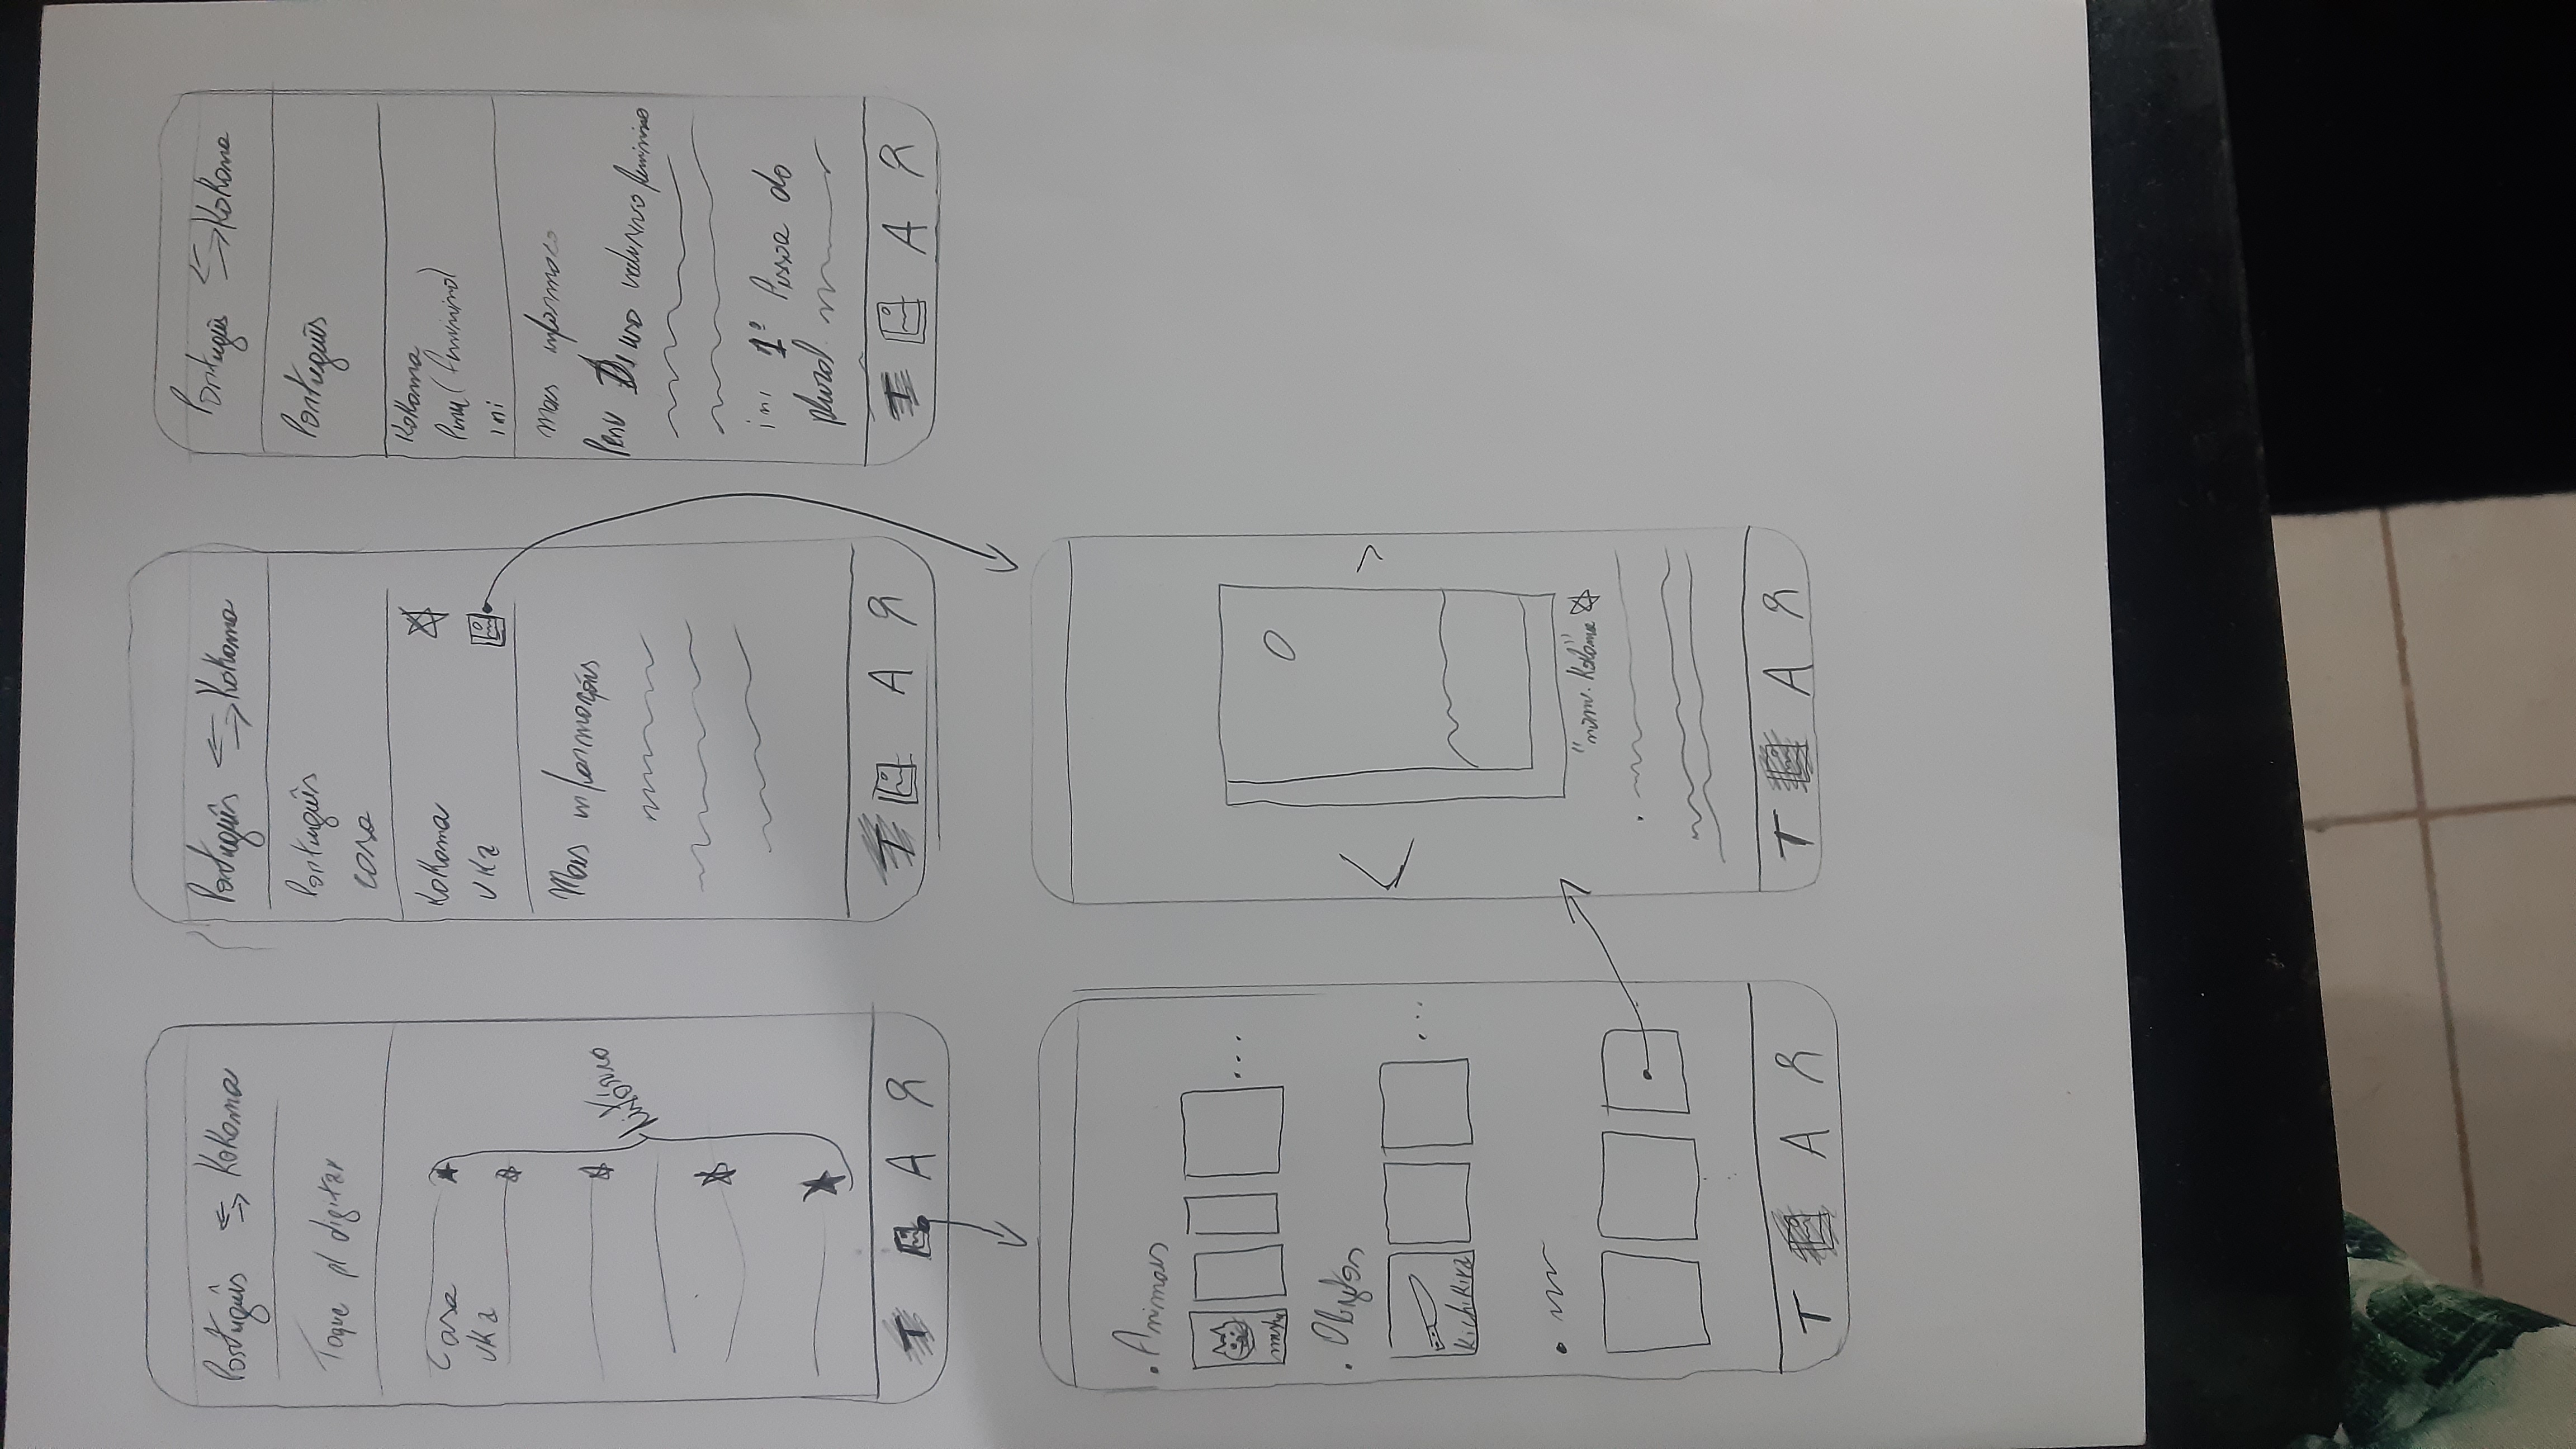 Português ⇆ Kokama
Toque p/ digitar
Casa
uka
histórico
T A
Português ⇆ Kokama
Português
casa
Kokama
uka
Mais informações
T A
Português ⇆ Kokama
Português
Kokama
Penu (feminino)
ini
mais informaco
Penu De uso exclusivo feminino
ini 1ª Pessoa do
plural
T A
• Animais
mishu
• Objetos
Kichikira
T A
"nome Kokama"
T A